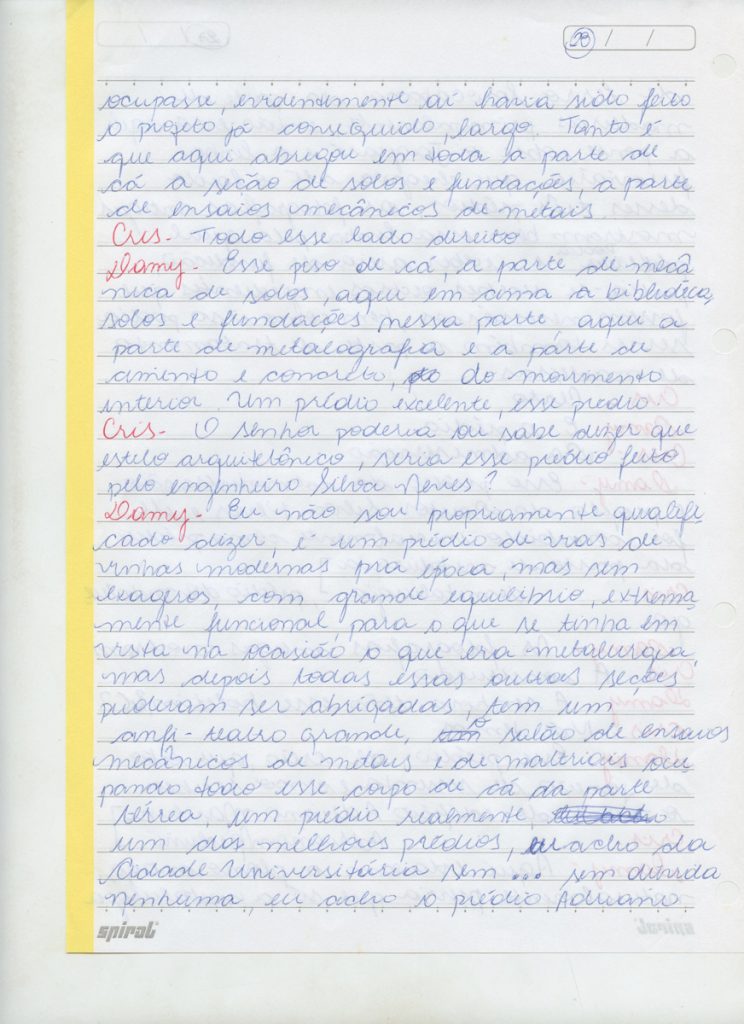 28 / /
ocupasse, evidentemente aí havia sido feito
o projeto já conseguido, largo. Tanto é
que aqui abrigou em toda a parte de
cá a seção de solos e fundações, a parte
de ensaios mecânicos de metais.
Cris- Todo esse lado direito
Damy- Esse piso de cá, a parte de mecâ
nica de solos, aqui em cima a biblioteca,
solos e fundações nessa parte aqui a
parte de metalografia e a parte de
cimento e concreto, do movimento
interior. Um prédio excelente, esse predio
Cris- O senhor poderia ou sabe dizer que
estilo arquitetônico, seria esse prédio feito
pelo engenheiro Silva Neves?
Damy- Eu não sou propriamente qualifi
cado dizer, é um prédio de de
linhas modernas pra época, mas sem
exageros, com grande equilíbrio, extrema
mente funcional, para o que se tinha em
vista na ocasião o que era metalurgia,
mas depois todas essas outras seções
puderam ser abrigadas, tem um
anfi-teatro grande, o salão de ensaios
mecânicos de metais e de materiais ocu
pando todo esse corpo de cá da parte
térrea, um prédio realmente,
um dos melhores prédios, eu acho da
Cidade Universitária sem... sem dúvida
nenhuma, eu acho o prédio Adriano
spiral